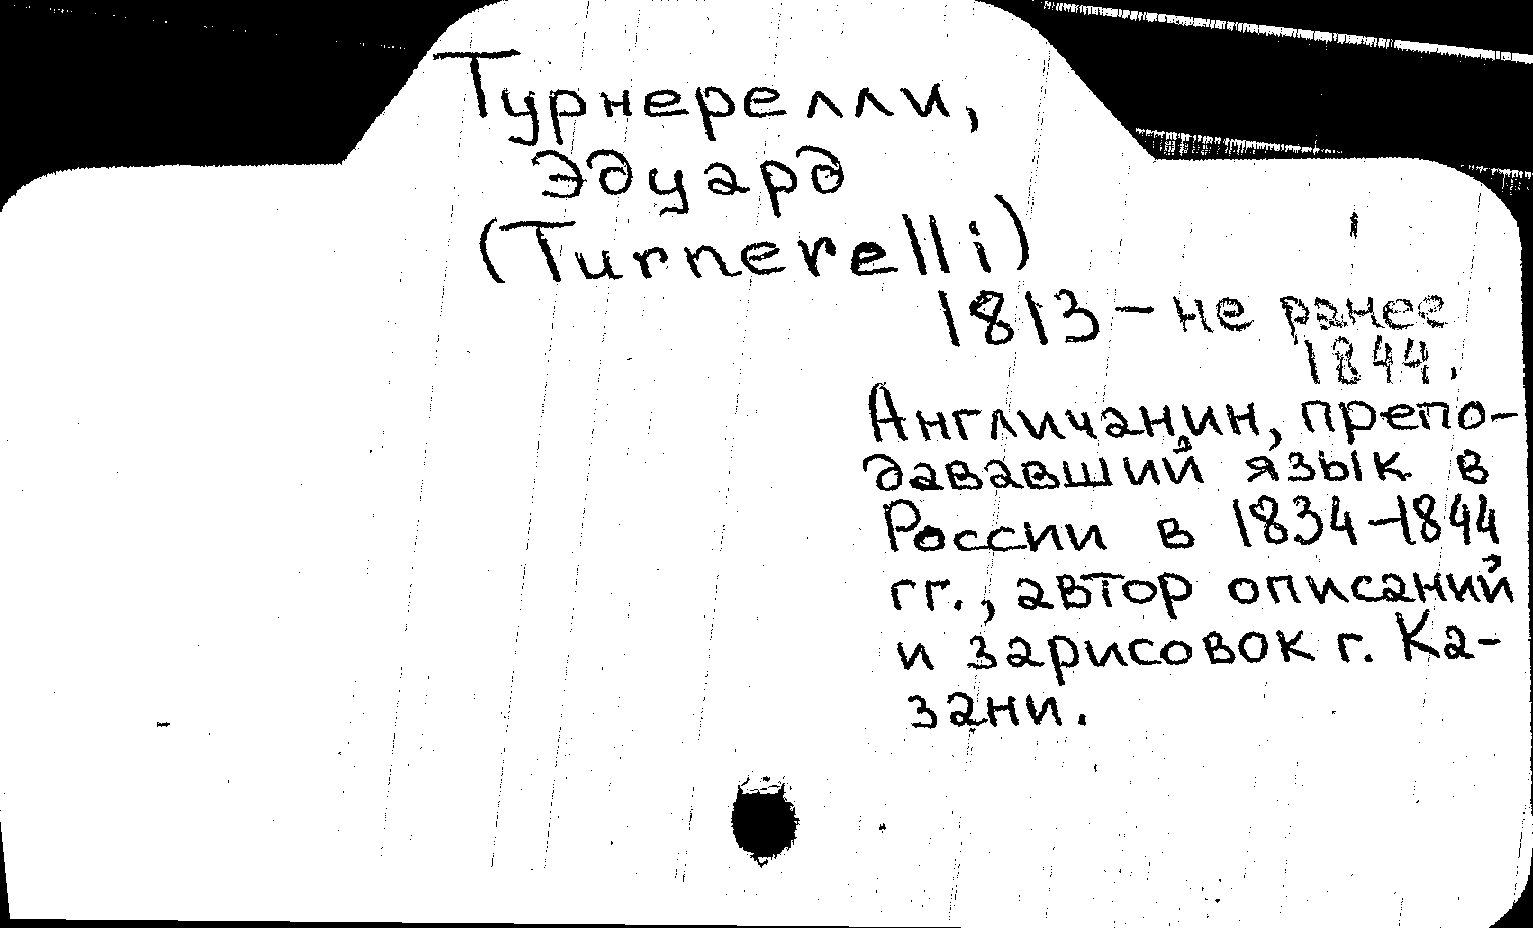 Турнерелли,
Эдуард
(Turnerelli)
1813 – не ранее
1844.
Англичанин, препо-
дававший язык в
России в 1834–1844
гг., автор описаний
и зарисовок г. Ка-
зани.